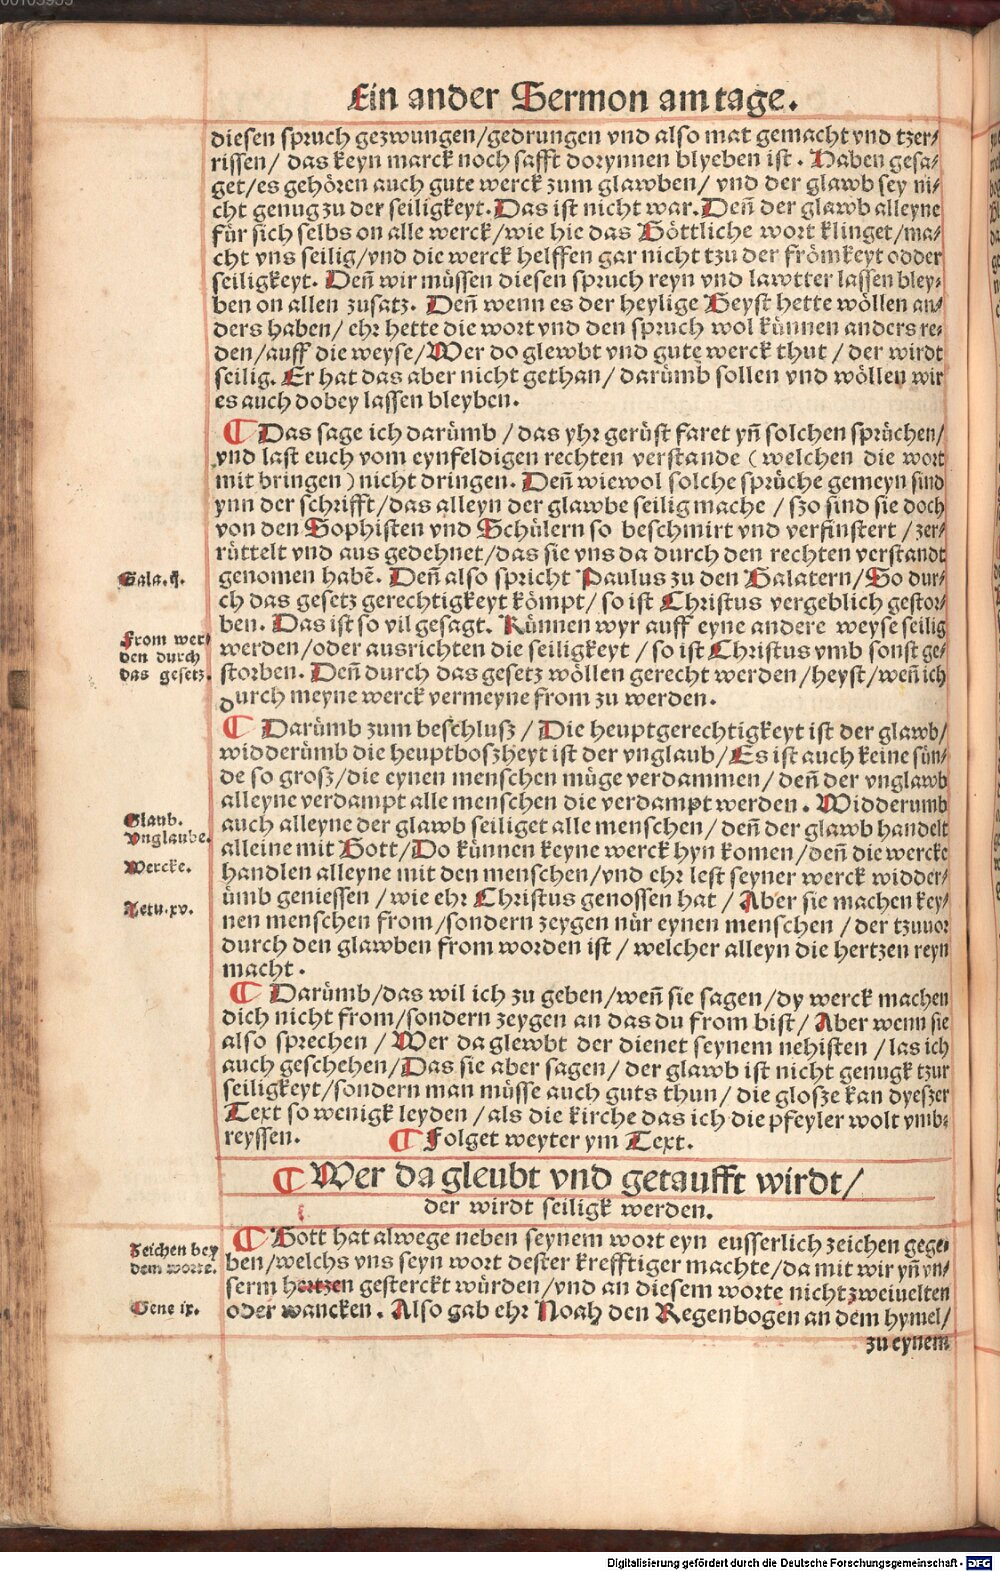 Ein ander Sermon am tage.
diesen spruch gezwungen/gedrungen vnd also mat gemacht vnd tzer/
rissen/ das keyn marck noch safft dorynnen blyeben ist. Haben gesa/
get/es gehören auch gute werck zum glawben/ vnd der glawb sey ni/
cht genug zu der seiligkeyt. Das ist nicht war. Den̄ der glawb alleyne
für sich selbs on alle werck/wie hie das Göttliche wort klinget/ma/
cht vns seilig/vnd die werck helffen gar nicht tzu der frömkeyt odder
seiligkeyt. Den̄ wir müssen diesen spruch reyn vnd lawtter lassen bley/
ben on allen zusatz. Den̄ wenn es der heylige Geyst hette wöllen an/
ders haben/ ehr hette die wort vnd den spruch wol künnen anders re/
den/auff die weyse/Wer do glewbt vnd gute werck thut / der wirdt
seilig. Er hat das aber nicht gethan/ darümb sollen vnd wöllen wir
es auch dobey lassen bleyben.
¶ Das sage ich darümb / das yhr gerüst faret yn̄ solchen sprüchen/
vnd last euch vom eynfeldigen rechten verstande ( welchen die wort
mit bringen ) nicht dringen. Den̄ wiewol solche sprüche gemeyn sind
ynn der schrifft/das alleyn der glawbe seilig mache / szo sind sie doch
von den Sophisten vnd Schülern so beschmirt vnd verfinstert / zer/
rüttelt vnd aus gedehnet/das sie vns da durch den rechten verstandt
Gala. ij.
genomen habē. Den̄ also spricht Paulus zu den Galatern/So dur/
ch das gesetz gerechtigkeyt kömpt/ so ist Christus vergeblich gestor/
ben. Das ist so vil gesagt. Künnen wyr auff eyne andere weyse seilig
From wer/
den durch
das gesetz.
werden/oder ausrichten die seiligkeyt / so ist Christus vmb sonst ge/
storben. Den̄ durch das gesetz wöllen gerecht werden/heyst/wen̄ ich
durch meyne werck vermeyne from zu werden.
¶ Darümb zum beschlusz / Die heuptgerechtigkeyt ist der glawb/
widderümb die heuptboszheyt ist der vnglaub/Es ist auch keine sün/
de so grosz/die eynen menschen müge verdammen/ den̄ der vnglawb
alleyne verdampt alle menschen die verdampt werden. Widderumb
Glaub.
Vnglaube.
auch alleyne der glawb seiliget alle menschen/ den̄ der glawb handelt
alleine mit Gott/Do künnen keyne werck hyn komen/den̄ die wercke
Wercke.
handlen alleyne mit den menschen/vnd ehr lest seyner werck widder/
ümb geniessen/ wie ehr Christus genossen hat / Aber sie machen key/
Actu. xv.
nen menschen from/sondern zeygen nür eynen menschen / der tzuuor
durch den glawben from worden ist / welcher alleyn die hertzen reyn
macht.
¶ Darümb/das wil ich zu geben/wen̄ sie sagen/dy werck machen
dich nicht from/sondern zeygen an das du from bist/ Aber wenn sie
also sprechen / Wer da glewbt der dienet seynem nehisten / las ich
auch geschehen/Das sie aber sagen/ der glawb ist nicht genugk tzur
seiligkeyt/sondern man müsse auch guts thun/ die glosze kan dyeszer
Text so wenigk leyden / als die kirche das ich die pfeyler wolt vmb/
reyssen. ¶ Folget weyter ym Text.
¶ Wer da gleubt vnd getaufft wirdt/
der wirdt seiligk werden.
Zeichen bey
dem worte.
¶ Gott hat alwege neben seynem wort eyn eusserlich zeichen gege/
ben/welchs vns seyn wort dester krefftiger machte/da mit wir yn̄ vn/
serm hertzen gesterckt würden/vnd an diesem worte nicht zweiuelten
Gene ix.
oder wancken. Also gab ehr Noah den Regenbogen an dem hymel/
zu eynem
Digitalisierung gefördert durch die Deutsche Forschungsgemeinschaft - DFG